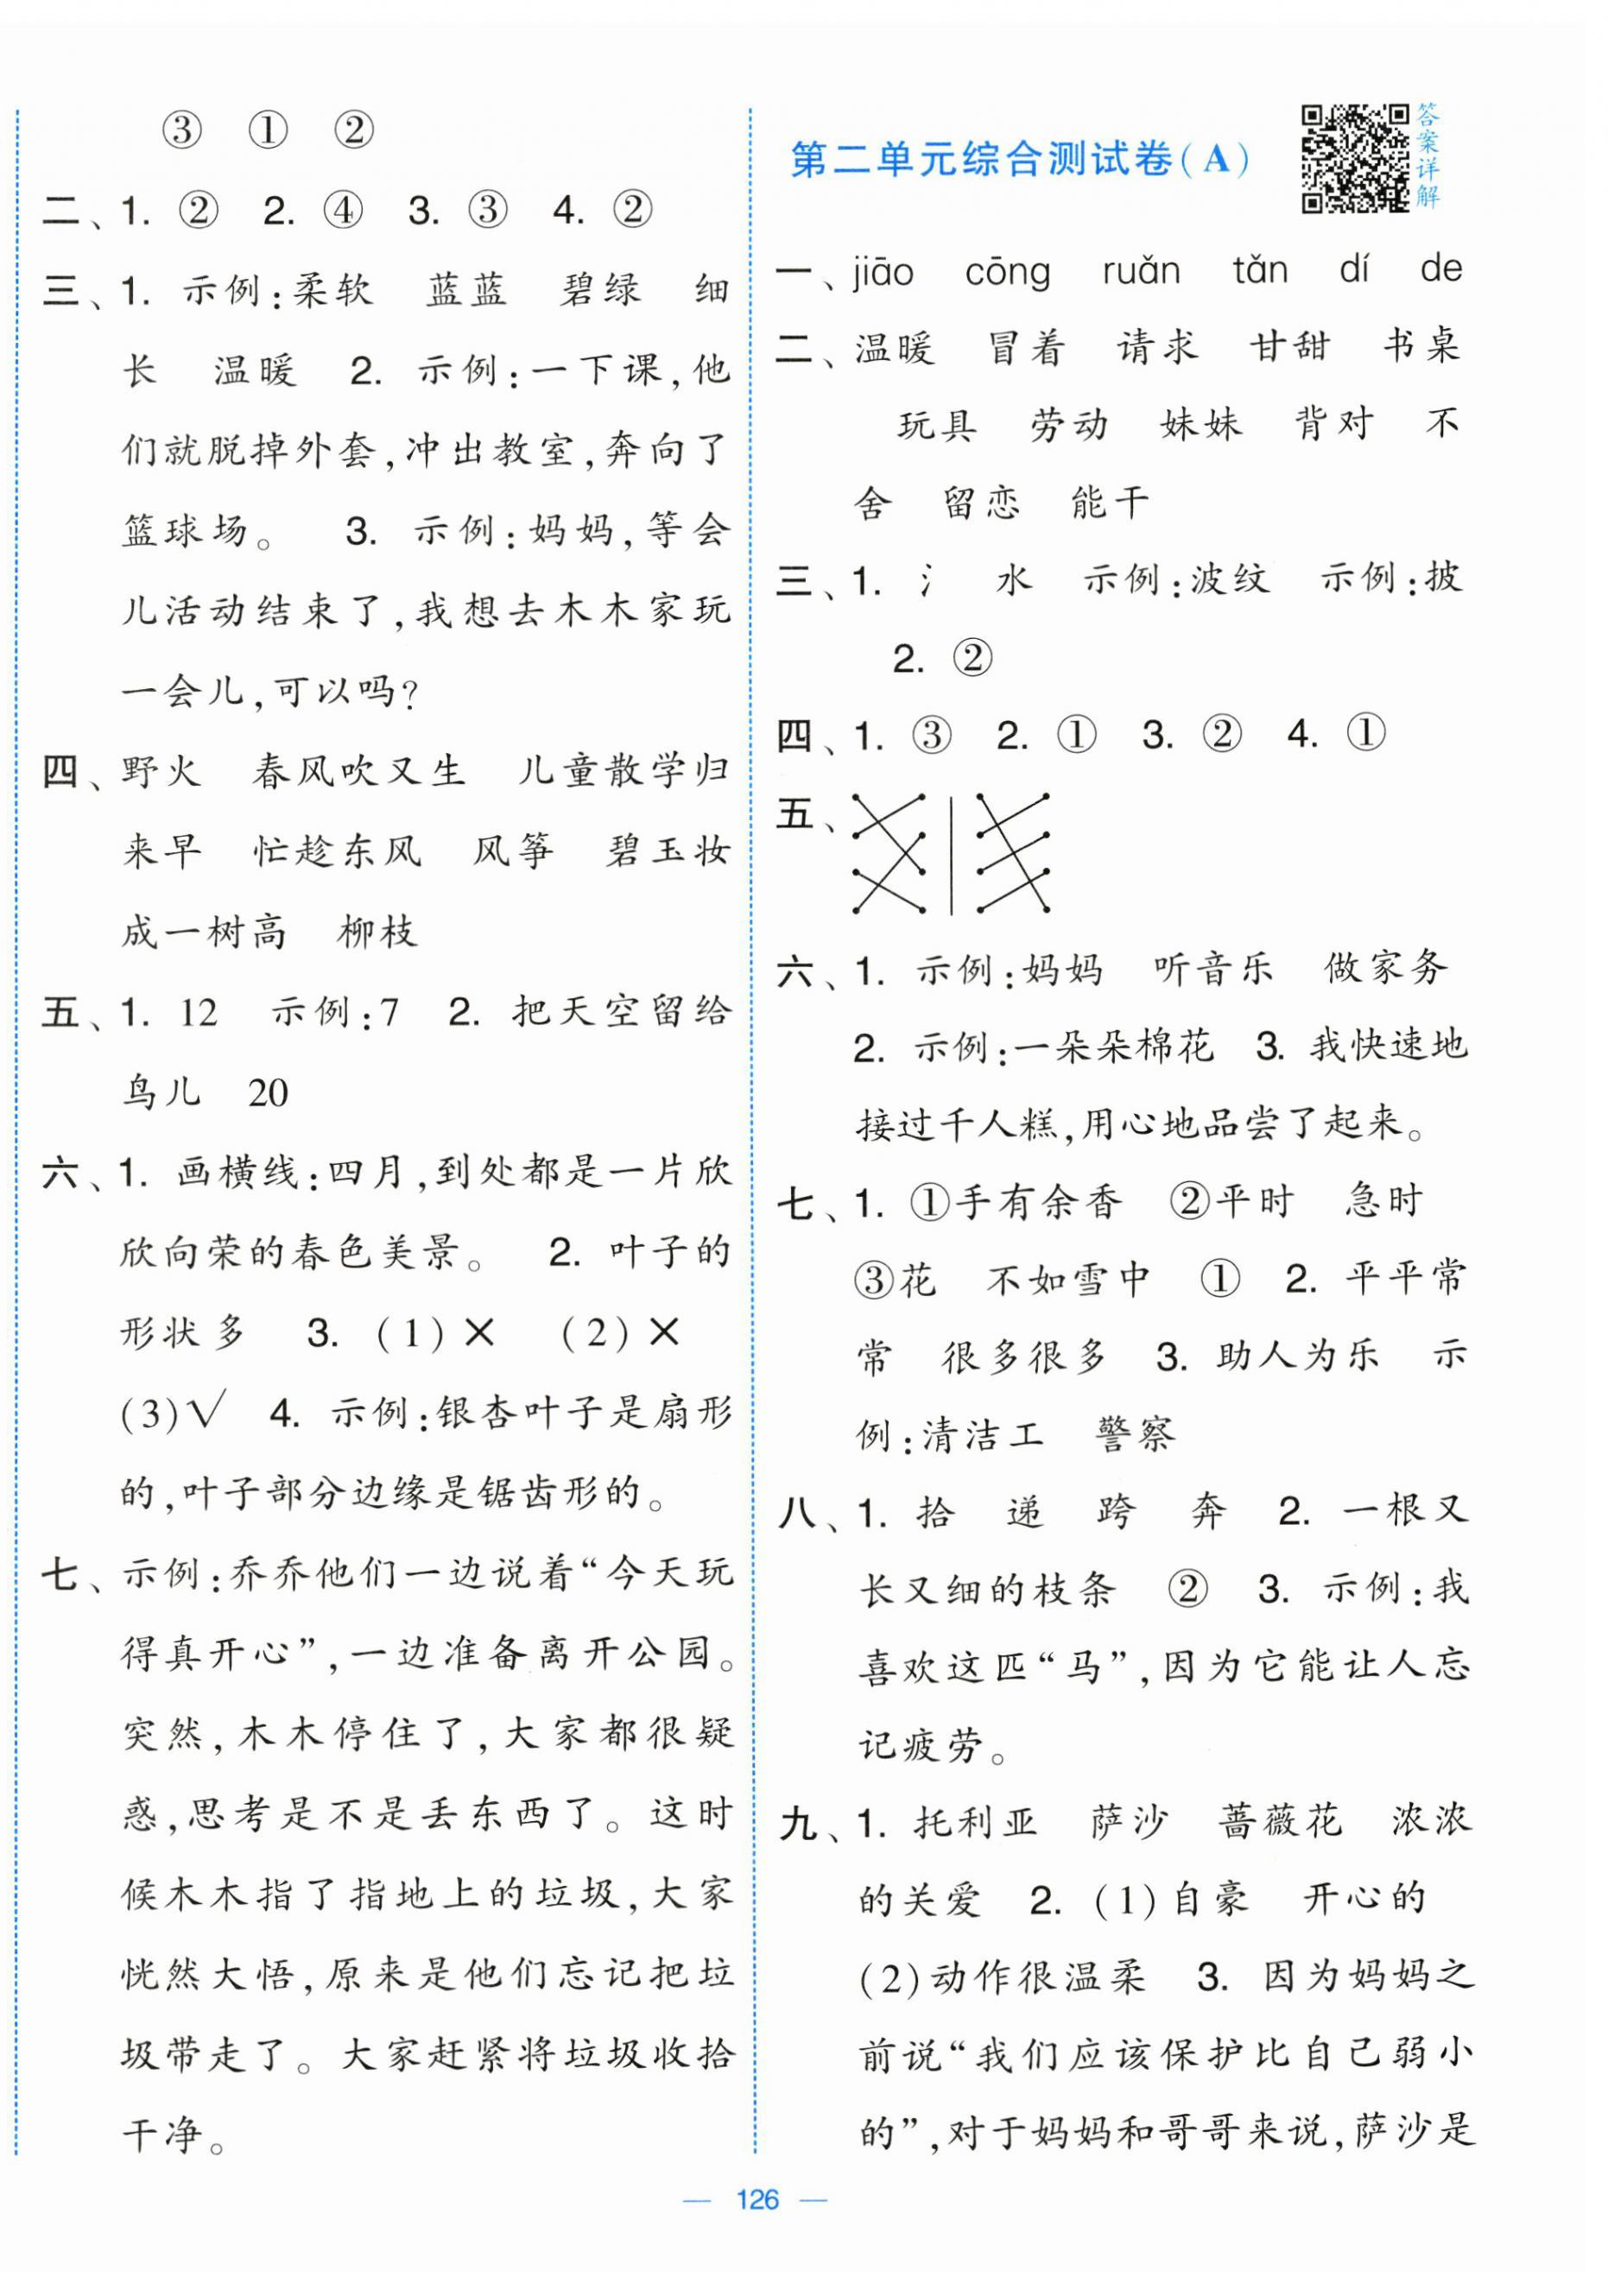 ③ ① ②
二、1. ② 2. ④ 3. ③ 4. ②
三、1. 示例:柔软 蓝蓝 碧绿 细
长 温暖 2. 示例:一下课,他
们就脱掉外套,冲出教室,奔向了
篮球场。 3. 示例:妈妈,等会
儿活动结束了,我想去木木家玩
一会儿,可以吗?
四、野火 春风吹又生 儿童散学归
来早 忙趁东风 风筝 碧玉妆
成一树高 柳枝
五、1. 12 示例:7 2. 把天空留给
鸟儿 20
六、1. 画横线:四月,到处都是一片欣
欣向荣的春色美景。 2. 叶子的
形状多 3. (1)× (2)×
(3)√ 4. 示例:银杏叶子是扇形
的,叶子部分边缘是锯齿形的。
七、示例:乔乔他们一边说着“今天玩
得真开心”,一边准备离开公园。
突然,木木停住了,大家都很疑
惑,思考是不是丢东西了。这时
候木木指了指地上的垃圾,大家
恍然大悟,原来是他们忘记把垃
圾带走了。大家赶紧将垃圾收拾
干净。
第二单元综合测试卷(A)
答案详解
一、jiāo cōng ruǎn tǎn dí de
二、温暖 冒着 请求 甘甜 书桌
玩具 劳动 妹妹 背对 不
舍 留恋 能干
三、1. 氵 水 示例:波纹 示例:披
2. ②
四、1. ③ 2. ① 3. ② 4. ①
五、
六、1. 示例:妈妈 听音乐 做家务
2. 示例:一朵朵棉花 3. 我快速地
接过千人糕,用心地品尝了起来。
七、1. ①手有余香 ②平时 急时
③花 不如雪中 ① 2. 平平常
常 很多很多 3. 助人为乐 示
例:清洁工 警察
八、1. 拾 递 跨 奔 2. 一根又
长又细的枝条 ② 3. 示例:我
喜欢这匹“马”,因为它能让人忘
记疲劳。
九、1. 托利亚 萨沙 蔷薇花 浓浓
的关爱 2. (1)自豪 开心的
(2)动作很温柔 3. 因为妈妈之
前说“我们应该保护比自己弱小
的”,对于妈妈和哥哥来说,萨沙是
— 126 —